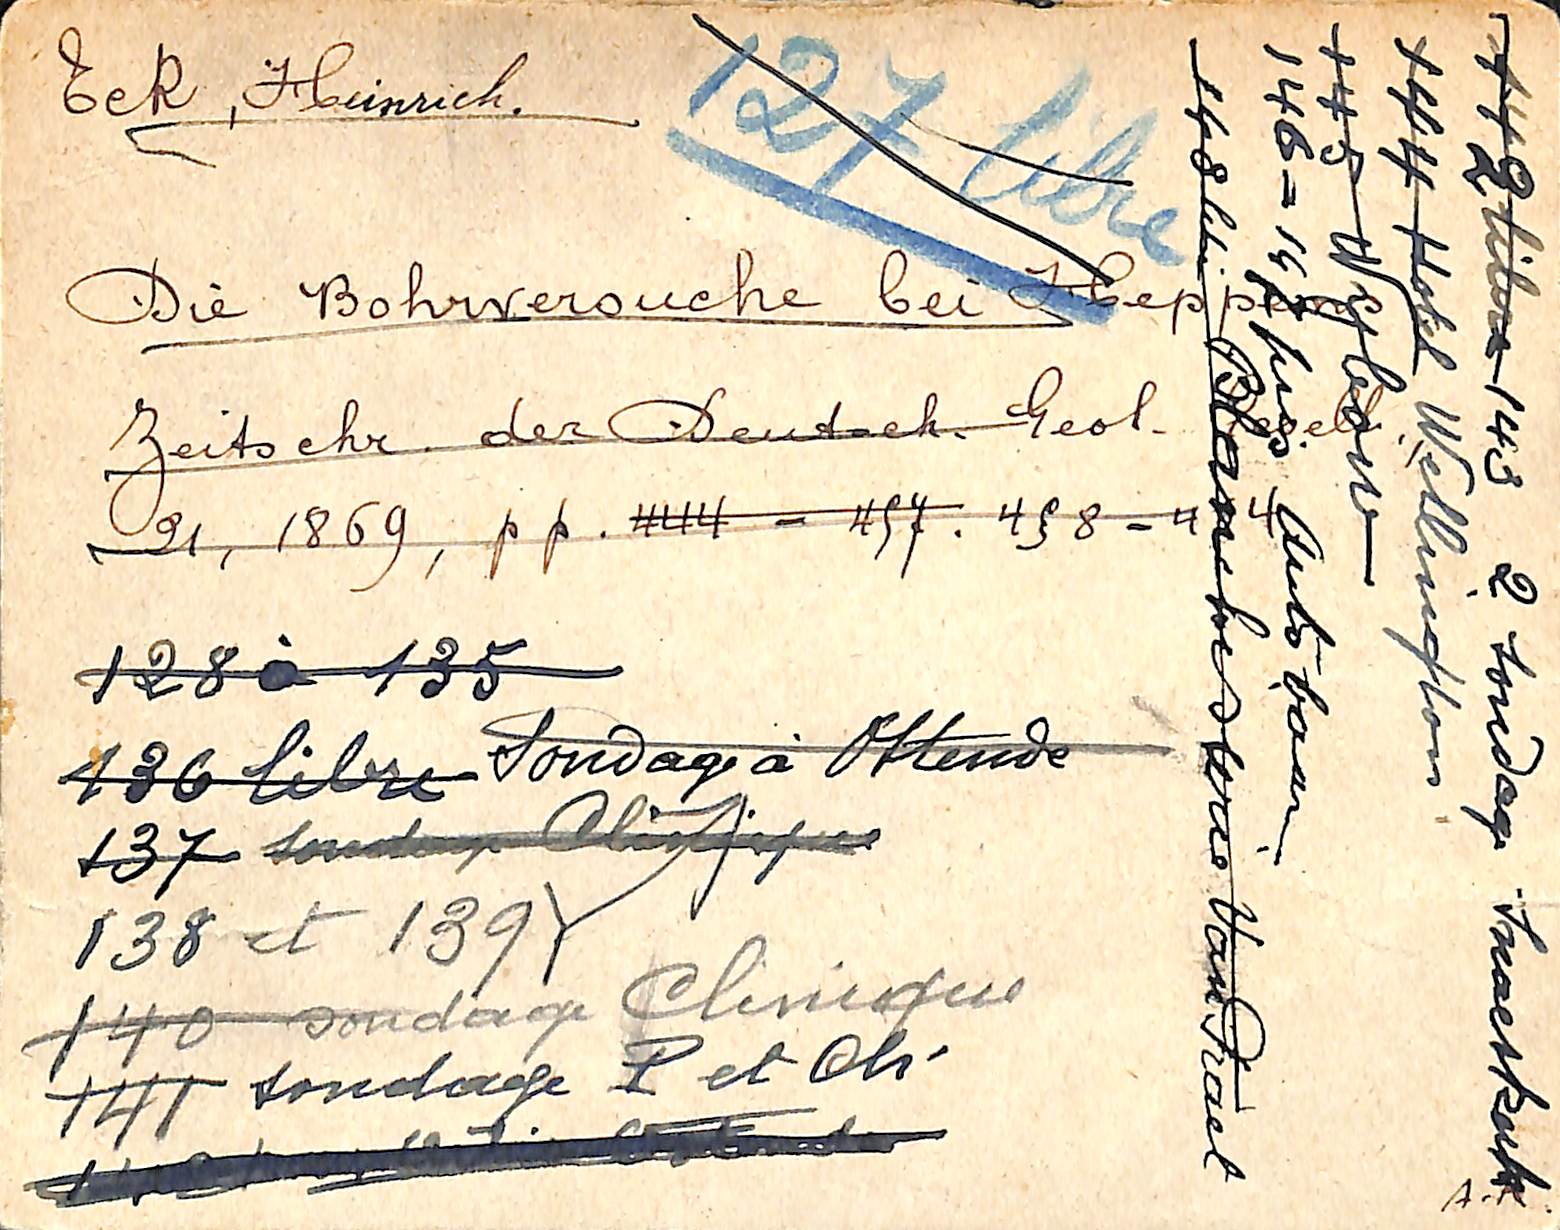 Eck, Heinrich.
127 libre
Die Bohrversuche bei Heppens
Zeitschr. der Deutsch. Geol. Gesell.
21, 1869, pp. 444 - 457. 458 -
128 à 135
136 libre Sondage à Ostende
137 sondage Clinique
138 et 139
140 sondage Clinique
141 sondage P et Ch
142 libre 143 2 sondage Smaeskerke
144 Hotel Wellington
145 Wybouw
146 = 147 puis Autobaan
148 Blanchisserie Van Praet
A.R.